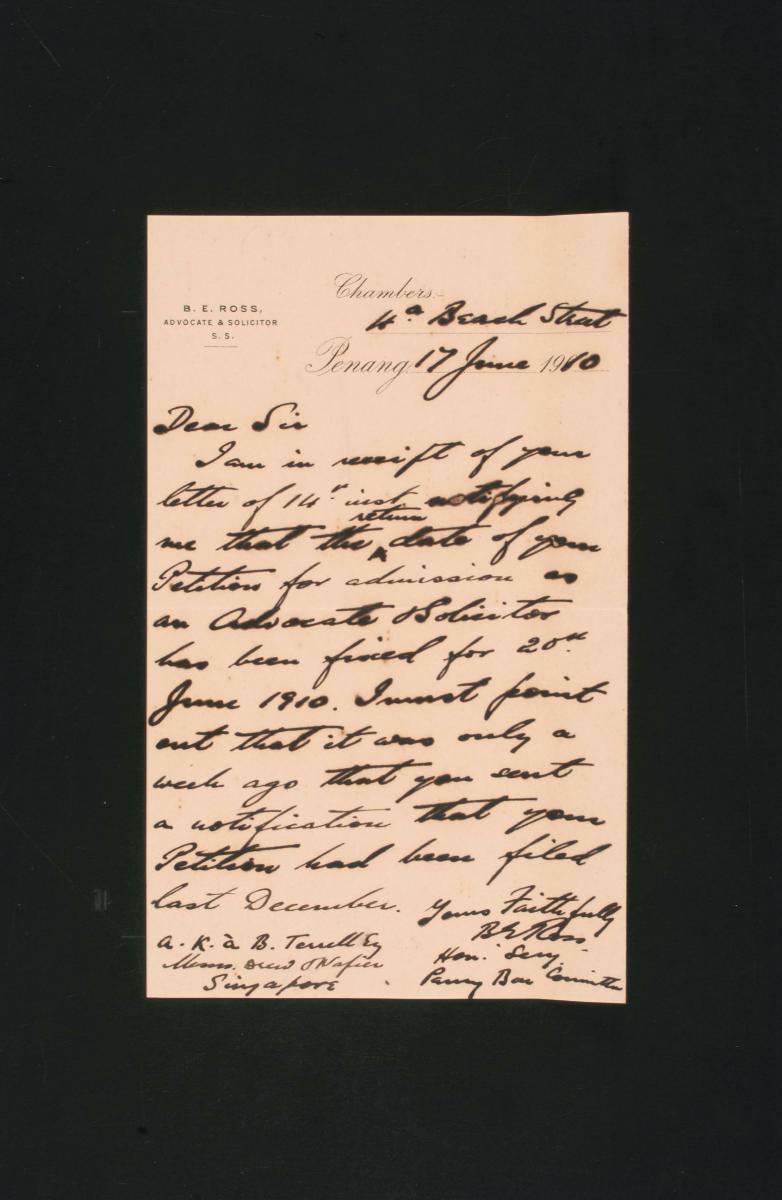 Chambers:-
B. E. ROSS,
ADVOCATE & SOLICITOR
S. S.
4a Beach Street
Penang 17 June 1910
Dear Sir
I am in receipt of your
letter of 14th inst. notifying
return
me that the ^ date of your
Petition for admission as
an Advocate & Solicitor
has been fixed for 20th
June 1910. I must point
out that it was only a
week ago that you sent
a notification that your
Petition had been filed
last December.
Yours Faithfully
B E Ross
Hon. Secy.
Penang Bar Committee
A. K. à B. Terrell Esq
Messrs. Drew & Napier
Singapore